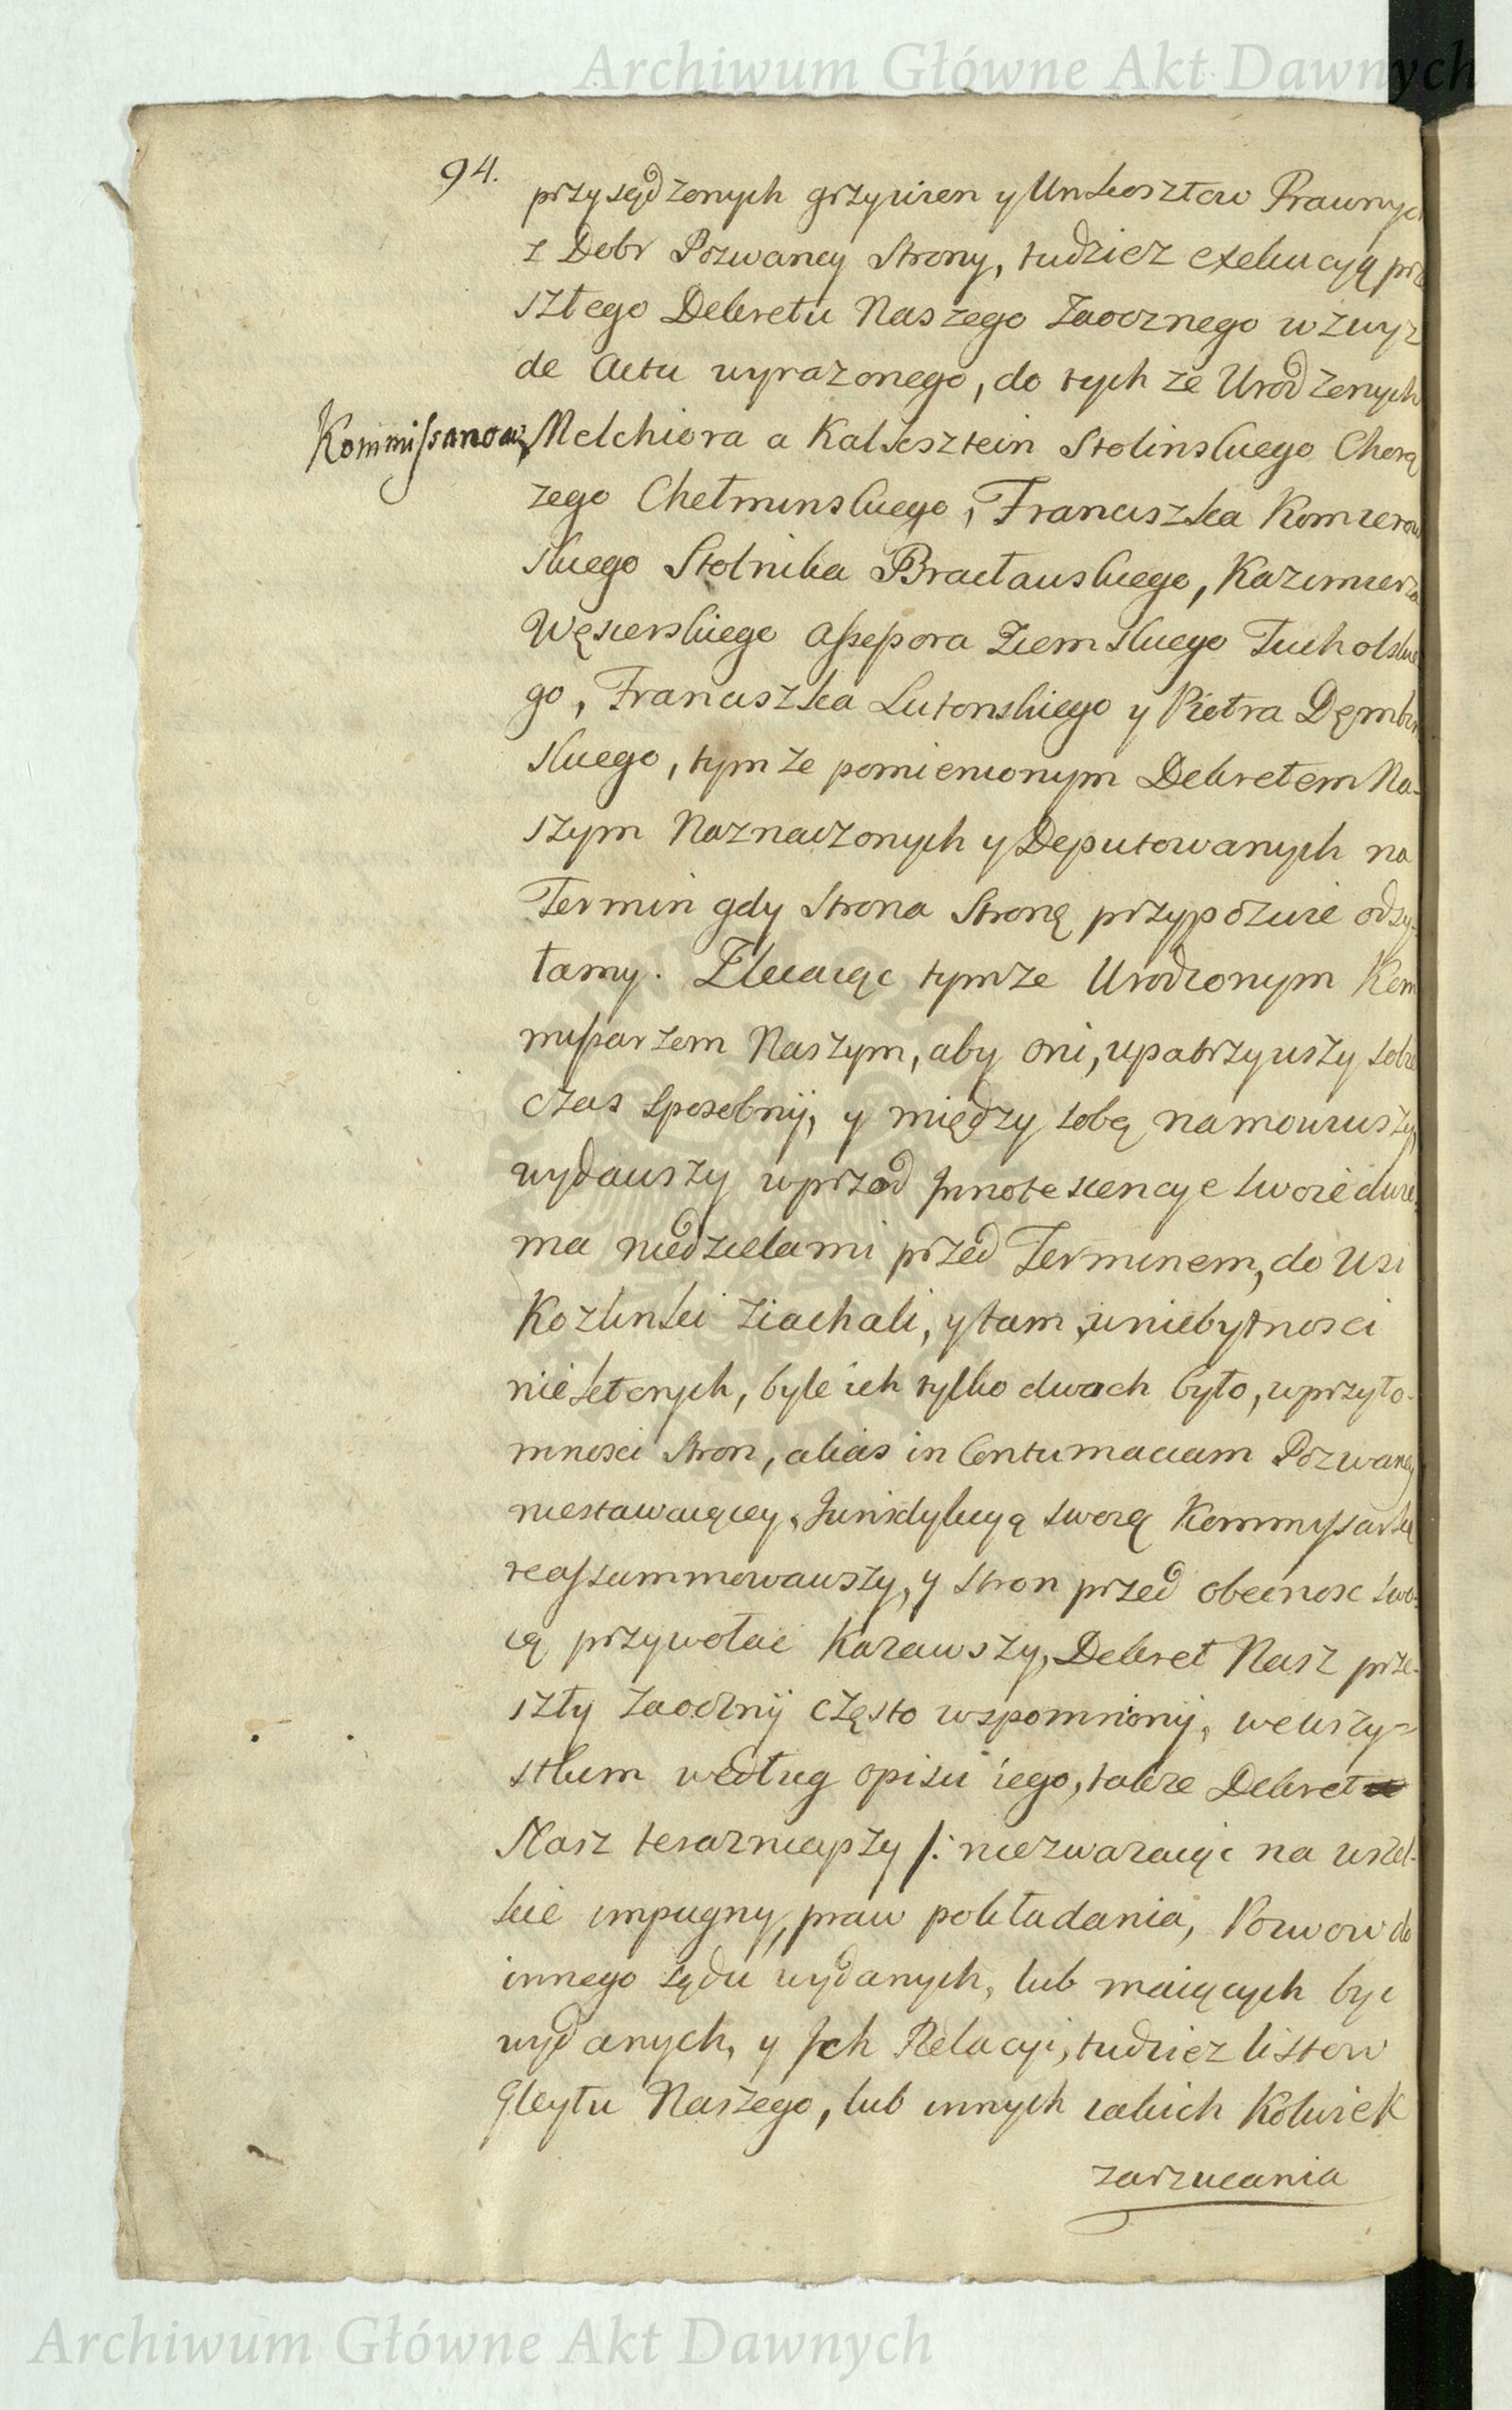 Archiwum Główne Akt Dawnych
94.
przysądzonych grzywien y Unkosztow Prawnych
z Dobr Pozwaney Strony, tudziez exekucyą prze
szłego Dekretu Naszego Zaocznego wzwyz
de Actu wyrazonego, do tych ze Urodzonych
Kommissarzow Melchiora a Kalksztein Stolinskiego Chorą
zego Chełminskiego, Franciszka Komierow
skiego Stolnika Bracławskiego, Kazimierza
Węsierskiego Assessora Ziemskiego Tucholskie
go, Franciszka Lutomskiego y Piotra Dąmbro
skiego, tymze pomienionym Dekretem Na-
szym Naznaczonych y Deputowanych na
Termin gdy Strona Stronę przypozwie odsy-
łamy. Zlecaiąc tymze Urodzonym Kom
missarzom Naszym, aby oni, upatrzywszy sobie
czas sposobnij, y między sobą namowiwszy,
wydawszy wprzod Innotescencye swoie dwie-
ma niedzielami przed Terminem, do Wsi
Kozlinki ziachali, y tam, w niebytnosci
niektorych, byle ich tylko dwoch było, w przyto-
mnosci Stron, alias in Contumaciam Pozwaney
niestawaiącey, Jurisdykcyą swoią Kommissarską
reassummowawszy, y Stron przed obecnosc swo-
ią przywołac Kazawszy, Dekret Nasz prze-
szły zaocznij często wspomnionij, we wszy=
stkim według opisu iego, takze Dekret
Nasz teraznieyszy /: niezwazaiąc na wszel-
kie impugny, praw pokładania, Pozwow do
innego sądu wydanych, lub maiących byc
wydanych, y Ich Relacyi, tudziez listow
Gleytu Naszego, lub innych iakich Kolwiek
zarzucania
Archiwum Główne Akt Dawnych